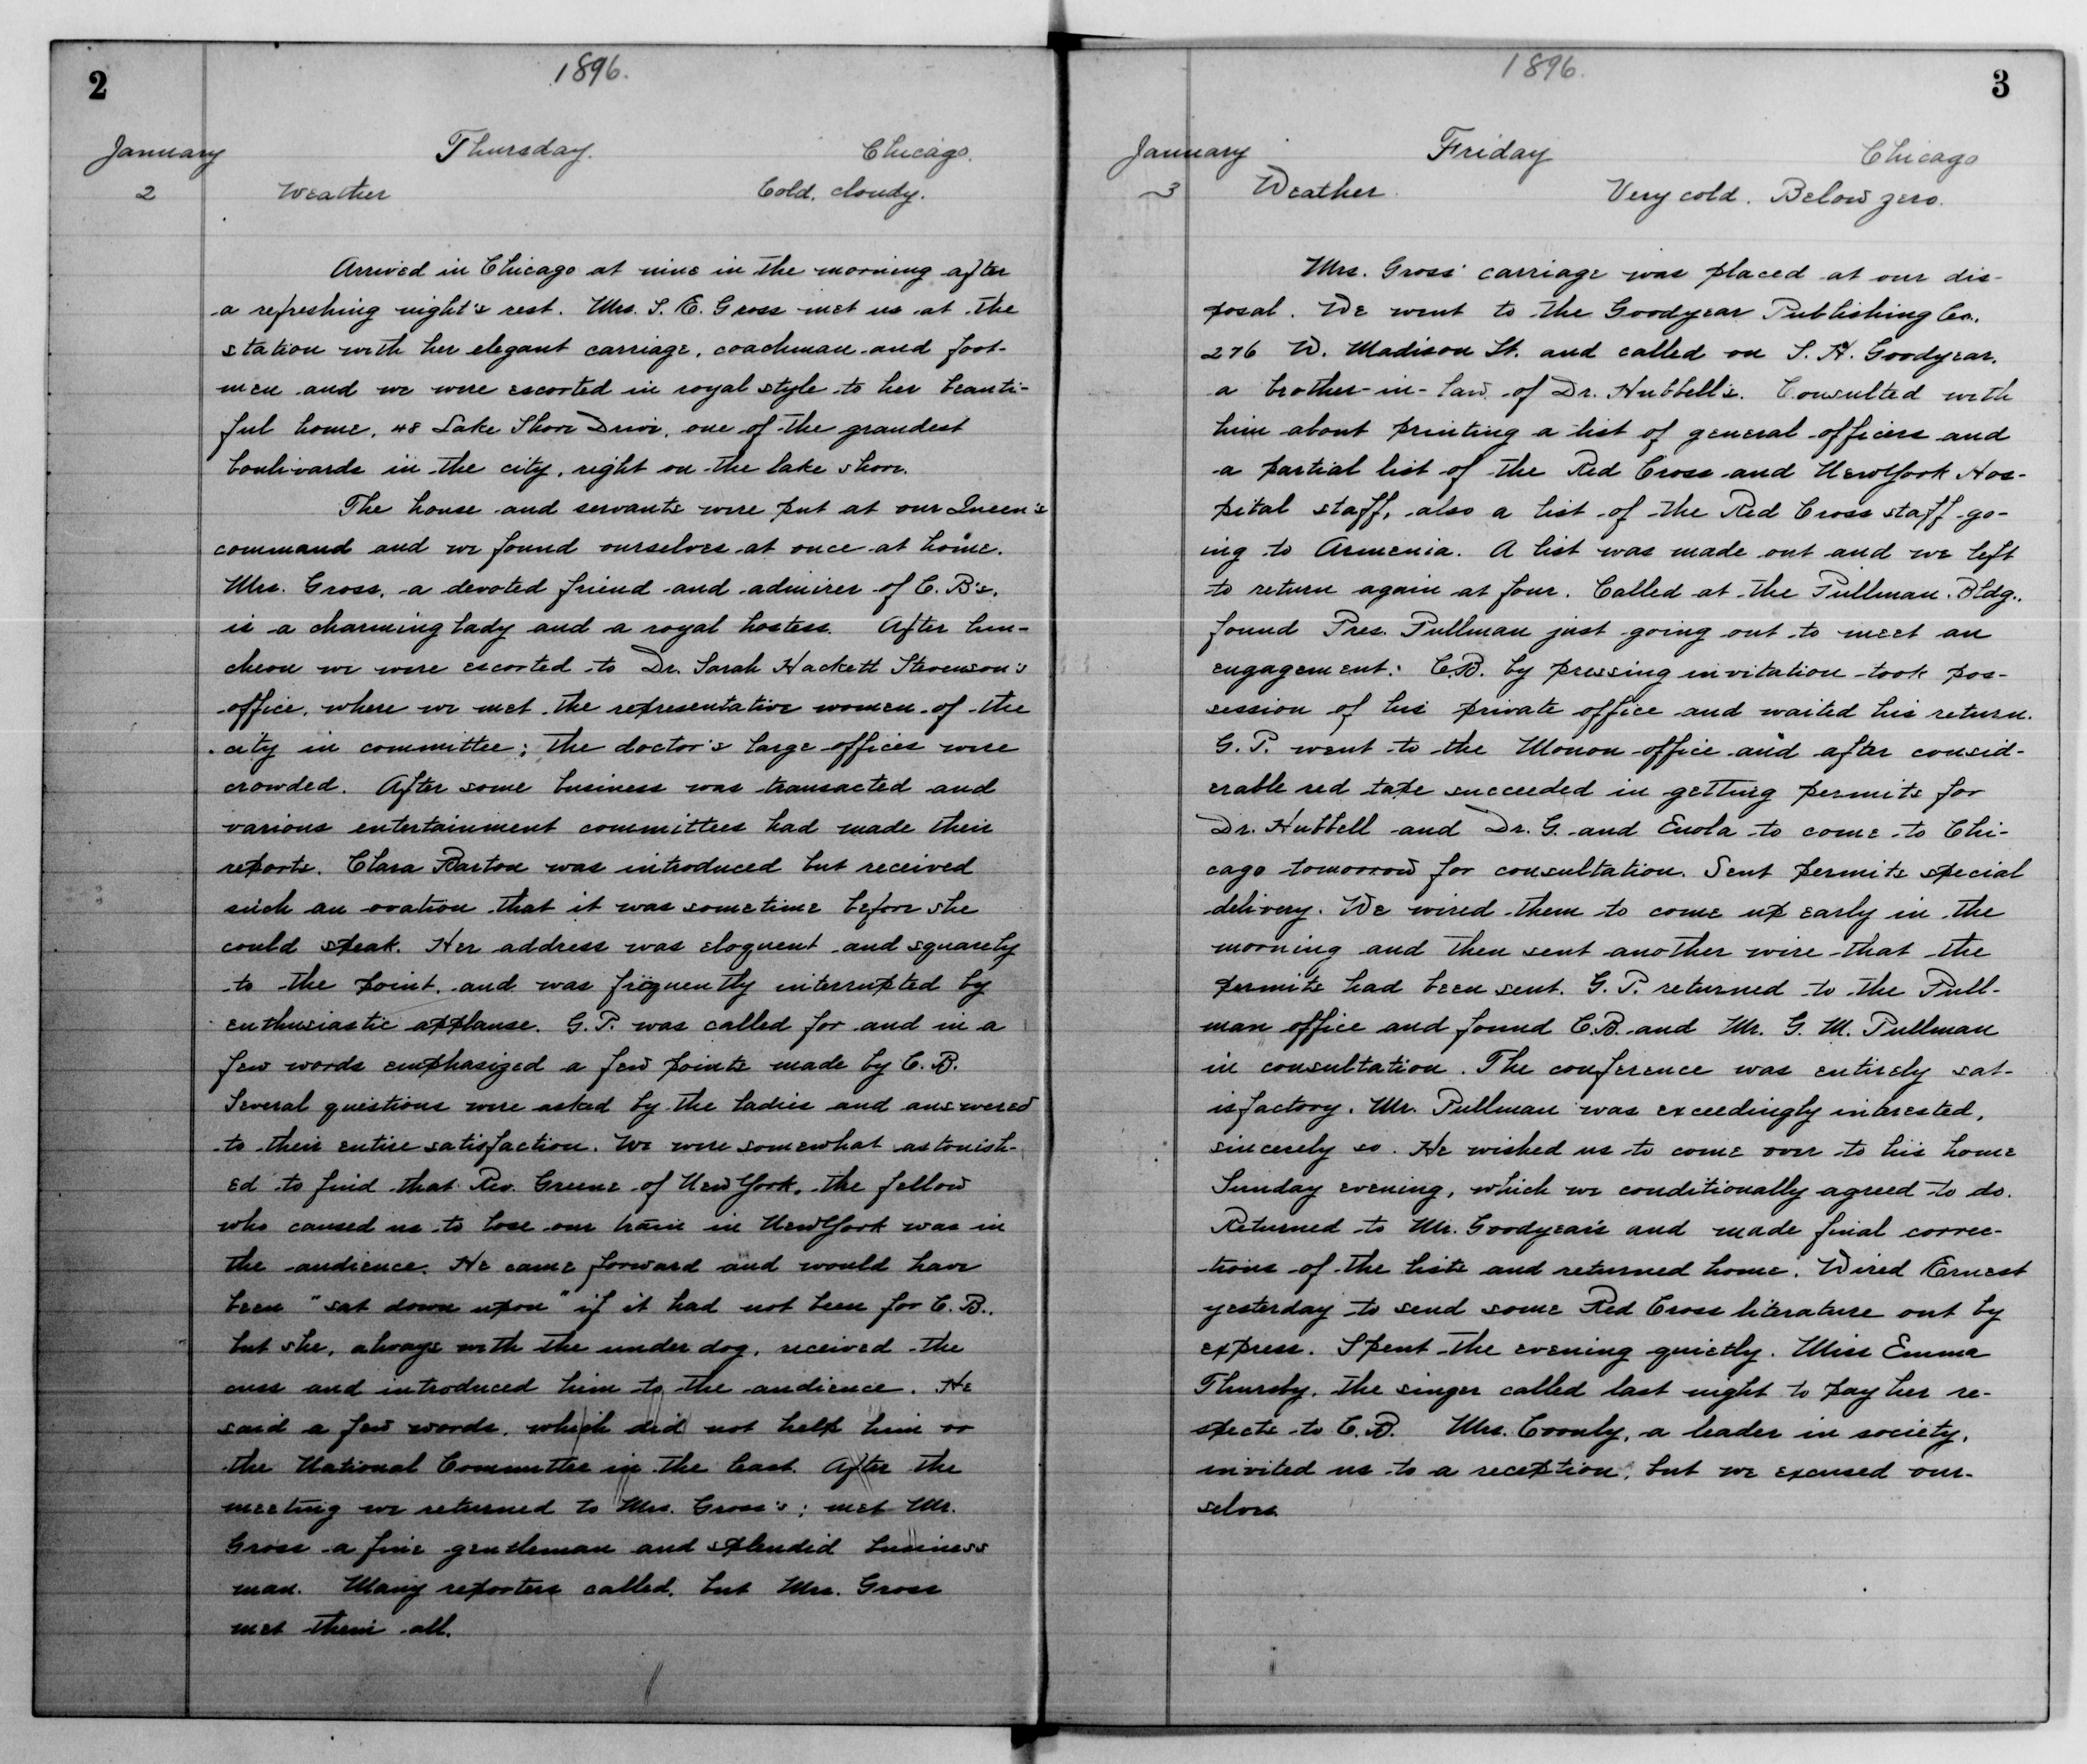 2
1896.
January Thursday. Chicago.
2 Weather Cold, cloudy.
Arrived in Chicago at nine in the morning after
a refreshing night's rest. Mrs. S. E. Gross met us at the
station with her elegant carriage, coachman and foot-
men and we were escorted in royal style to her beauti-
ful home, 48 Lake Shore Drive, one of the grandest
boulivards in the city, right on the lake shore.
The house and servants were put at our Queen's
command and we found ourselves at once at home.
Mrs. Gross, a devoted friend and admirer of C. B's,
is a charming lady and a royal hostess. After lun-
cheon we were escorted to Dr. Sarah Hackett Stevenson's
office, where we met the representative women of the
city in committee; the doctor's large offices were
crowded. After some business was transacted and
various entertainment committees had made their
reports, Clara Barton was introduced but received
such an ovation that it was sometime before she
could speak. Her address was eloquent and squarely
to the point, and was frequently interrupted by
enthusiastic applause. G. P. was called for and in a
few words emphasized a few points made by C. B.
Several questions were asked by the ladies and answered
to their entire satisfaction. We were somewhat astonish-
ed to find that Rev. Greene of New York, the fellow
who caused us to lose our train in New York was in
the audience. He came forward and would have
been "sat down upon" if it had not been for C. B.,
but she, always with the under dog, received the
cuss and introduced him to the audience. He
said a few words, which did not help him or
the National Committee in the least. After the
meeting we returned to Mrs. Gross's; met Mr.
Gross a fine gentleman and splendid business
man. Many reporters called, but Mrs. Gross
met them all.
1896.
3
January Friday Chicago
3 Weather. Very cold. Below zero.
Mrs. Gross' carriage was placed at our dis-
posal. We went to the Goodyear Publishing Co.,
276 W. Madison St. and called on S. H. Goodyear,
a brother-in-law of Dr. Hubbell's. Consulted with
him about printing a list of general officers and
a partial list of the Red Cross and New York Hos-
pital staff, also a list of the Red Cross staff go-
ing to Armenia. A list was made out and we left
to return again at four. Called at the Pullman Bldg.,
found Pres. Pullman just going out to meet an
engagement: C.B. by pressing invitation took pos-
session of his private office and waited his return.
G. P. went to the Monon office and after consid-
erable red tape succeeded in getting permits for
Dr. Hubbell and Dr. G. and Enola to come to Chi-
cago tomorrow for consultation. Sent permits special
delivery. We wired them to come up early in the
morning and then sent another wire that the
permits had been sent. G. P. returned to the Pull-
man office and found C.B. and Mr. G. M. Pullman
in consultation. The conference was entirely sat-
isfactory. Mr. Pullman was exceedingly interested,
sincerely so. He wished us to come over to his home
Sunday evening, which we conditionally agreed to do.
Returned to Mr. Goodyear's and made final correc-
tions of the lists and returned home. Wired Ernest
yesterday to send some Red Cross literature out by
express. Spent the evening quietly. Miss Emma
Thursby, the singer called last night to pay her re-
spects to C. B. Mrs. Coonly, a leader in society,
invited us to a reception, but we excused our-
selves.